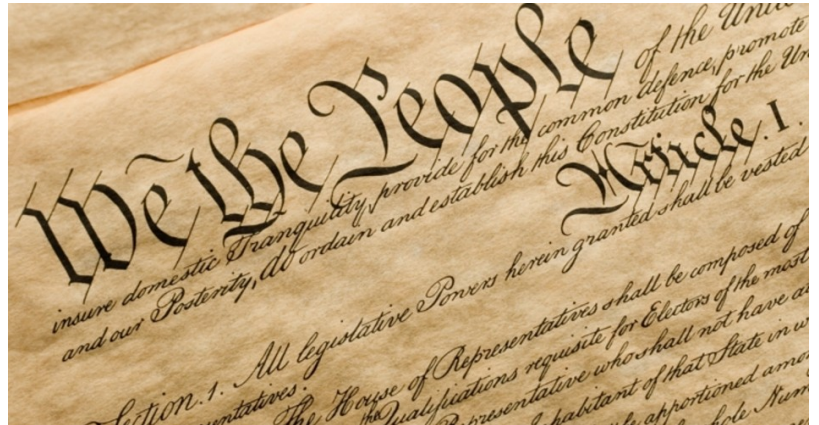 We the People of the Unite
insure domestic Tranquility, provide for the common defence, promote
and our Posterity, do ordain and establish this Constitution for the Un
Article. I.
Section. 1. All legislative Powers herein granted shall be vested
entatives.
The House of Representatives shall be composed of
the Qualifications requisite for Electors of the most
Representative who shall not have a
Inhabitant of that State in w
be apportioned amo
whole Num